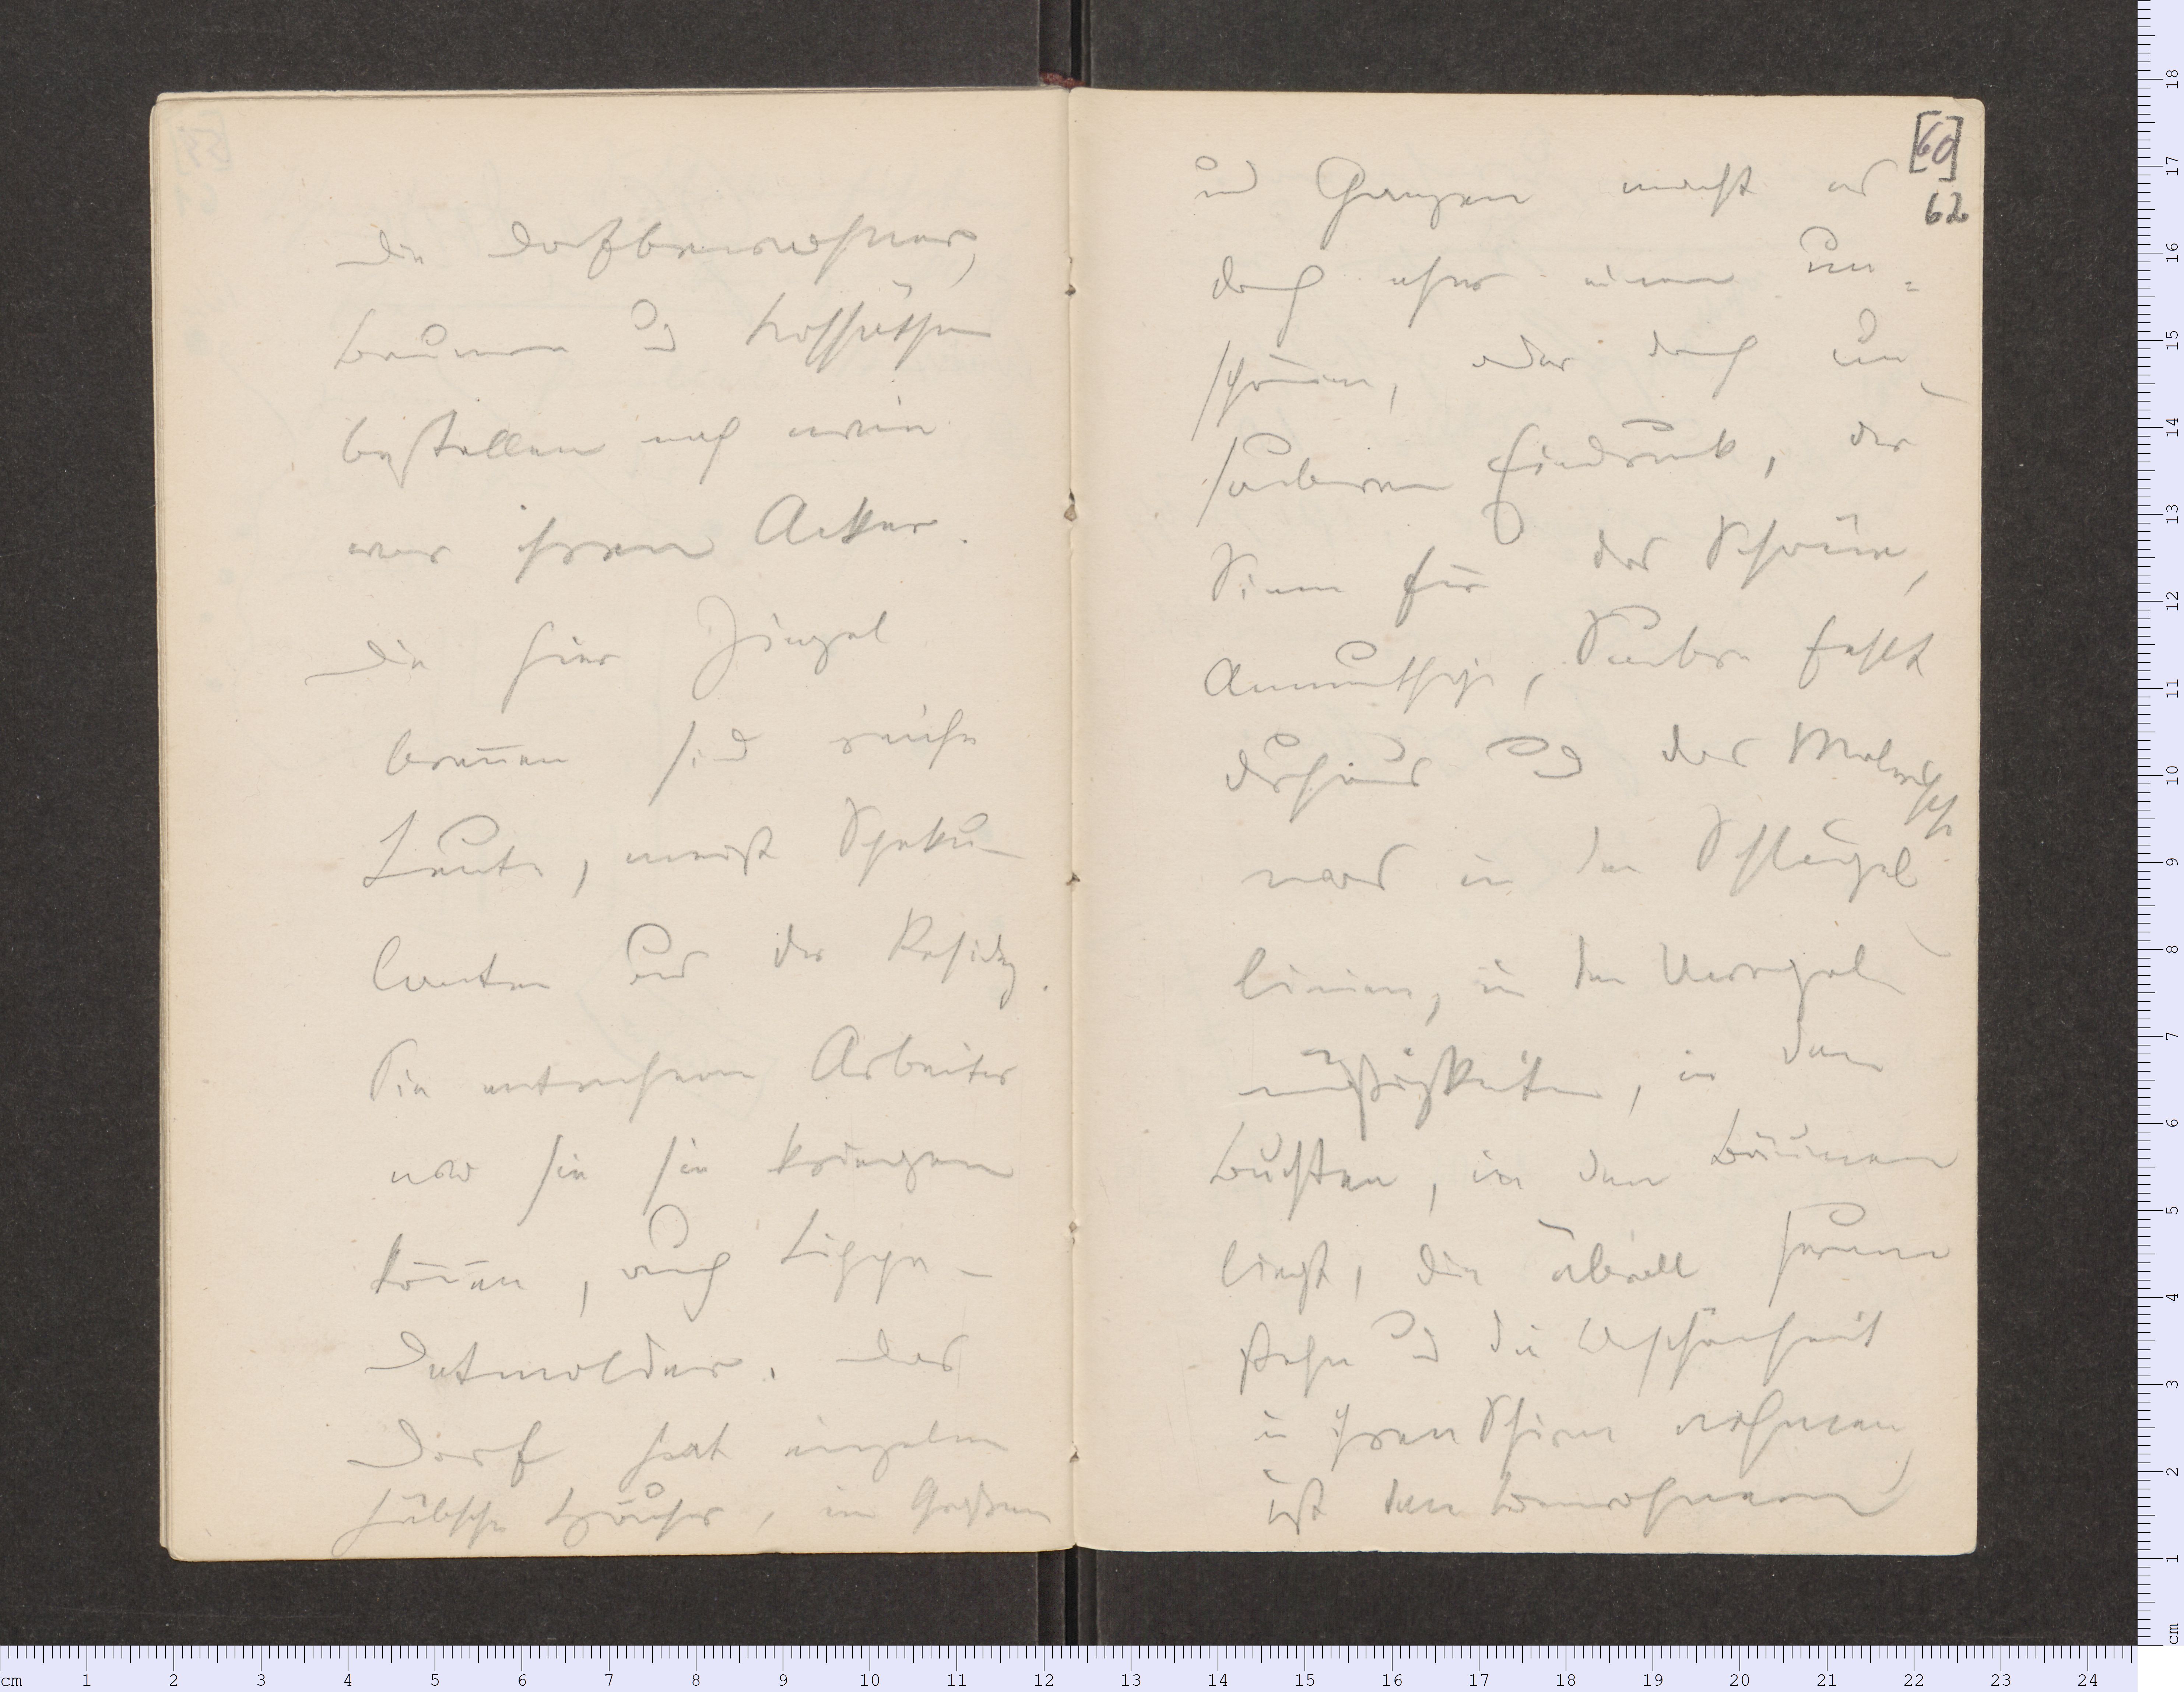 Die Dorfbewohner,
Bauern u Kossäthen
bestellen nach wie
vor ihren Acker.
Die hier Ziegel
breñen sind reiche
Leute, meist Speku-
lanten aus der Residz.
Sie entnehmen Arbeiter
wo sie sie kriegen
köñen, auch Lippe-
Detmolder. Das
Dorf hat einzelne
hübsche Häuser, im Großen
und Ganzen macht es
doch eher einen un-
schönen, oder doch un-
sauberen Eindruck, der
Sinn für das Schöne,
Anmuthige, Saubre fehlt
durchaus und das Malerische
was in den Schlängel
linien, in den Unregel
mäßigkeiten, in den
Buchten, in den Bäumen
liegt, die überall herum
stehn u die Unschönheit
in ihren Schirm nehmen,
ist den Bewohnern
[60]
62